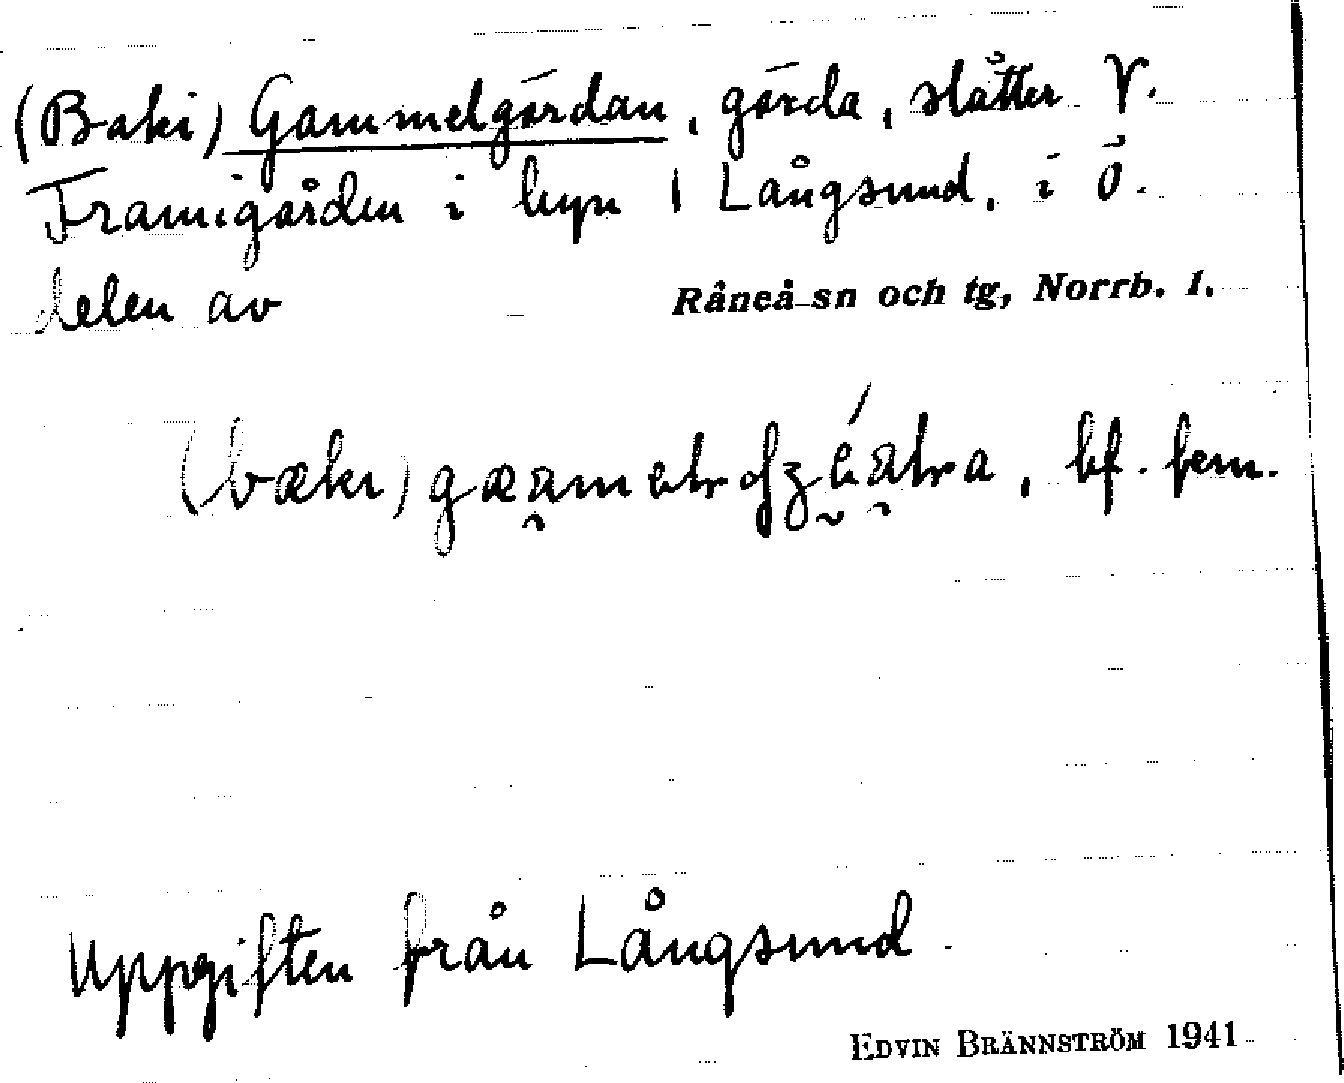 (Baki) Gammelgärdan, gärda, slåtter V.
Framigården i byn i Långsund, i ö.
delen av Råneå sn och tg, Norrb. l.
bf. fem.
Uppgiften från Långsund
EDVIN BRÄNNSTRÖM 1941